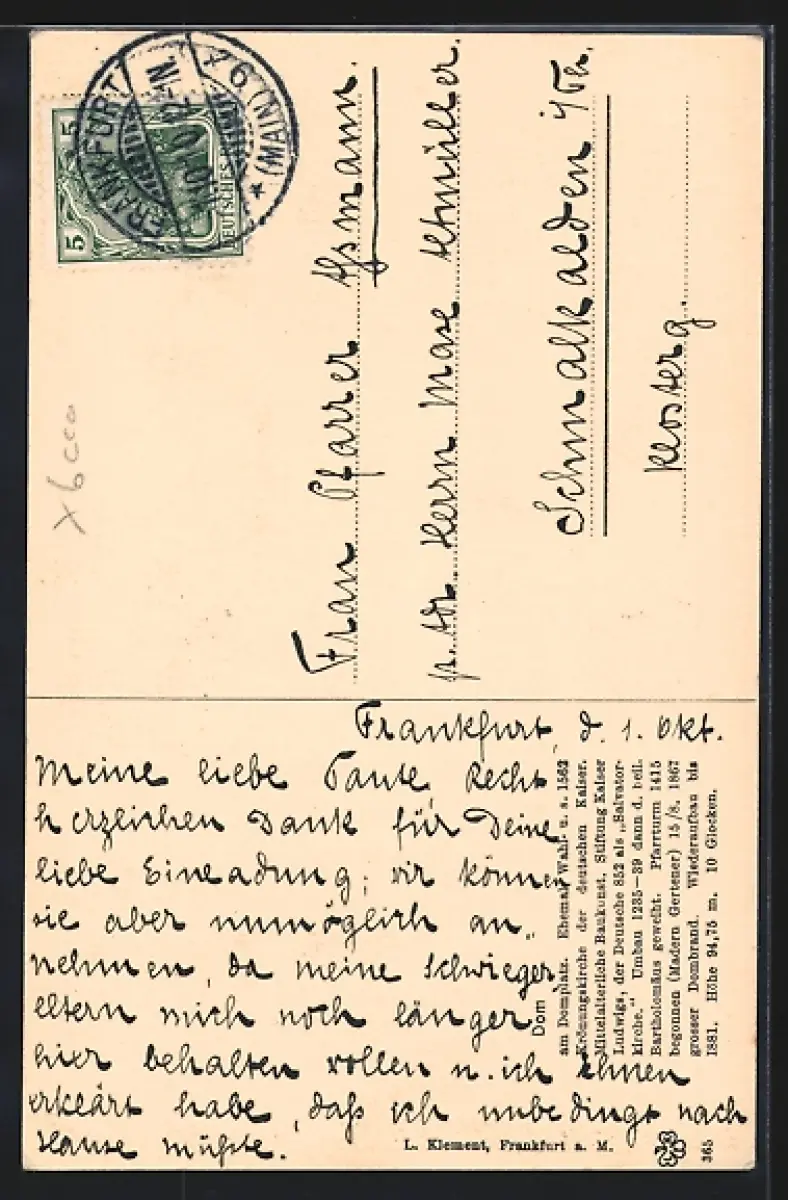 5
5
DEUTSCHES
FRANKFURT
* 6 (MAIN) *
Frau Pfarrer
p. Adr. Herrn Max
Schmalkalden i/Th.
Klosterg.
Frankfurt, d. 1. Okt.
Meine liebe Tante, Recht
herzlichen Dank für Deine
liebe Einladung; wir können
sie aber unmöglich an„
nehmen, da meine Schwieger
eltern mich noch länger
hier behalten wollen u. ich ihnen
erklärt habe, daß ich unbedingt nach
Hause müßte.
Dom
am Domplatz. Ehemal. Wahl- u. s. 1562
Krönungskirche der deutschen Kaiser.
Mittelalterliche Baukunst, Stiftung Kaiser
Ludwigs, der Deutsche 852 als „Salvator-
kirche." Umbau 1235—39 dann d. heil.
Bartholomäus geweiht. Pfarrturm 1415
begonnen (Madern Gertener) 15/8. 1867
grosser Dombrand. Wiederaufbau bis
1881. Höhe 94,75 m. 10 Glocken.
L. Klement, Frankfurt a. M.
365